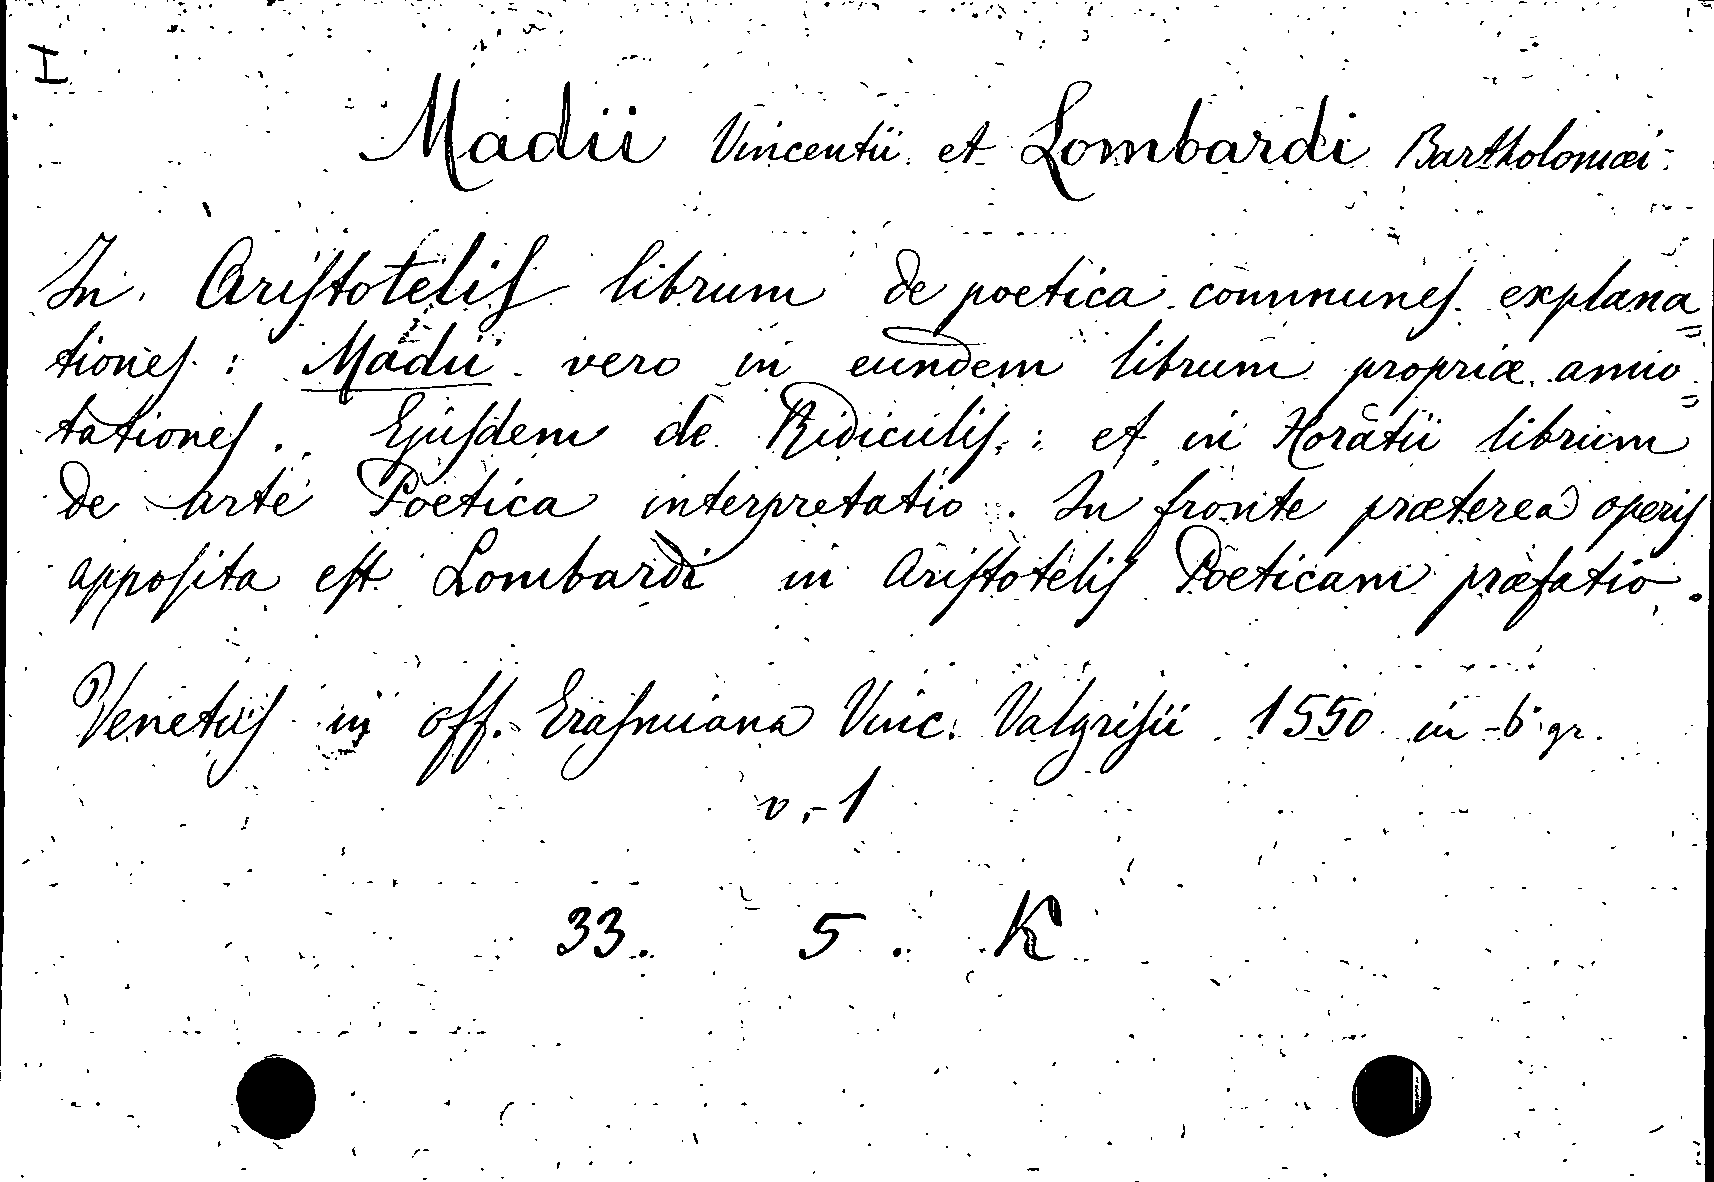 I
Madii Vincentii et Lombardi Bartholomæi
In Aristotelis librum de poetica communes explana=
tiones : Madii vero in eundem librum propriæ anno=
tationes. Ejusdem de Ridiculis : et in Horatii librum
de arte Poetica interpretatio. In fronte præterea operis
apposita est Lombardi in Aristotelis Poeticam præfatio.
Venetiis in off. Erasmiana Vinc. Valgrisii 1550 in - gr.
v.-1
33. 5. K